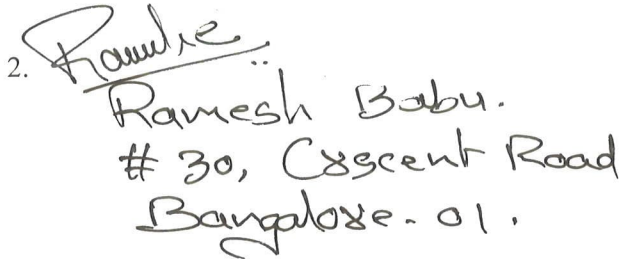 2.
Ramesh Babu.
# 30, Crescent Road
Bangalore. 01.